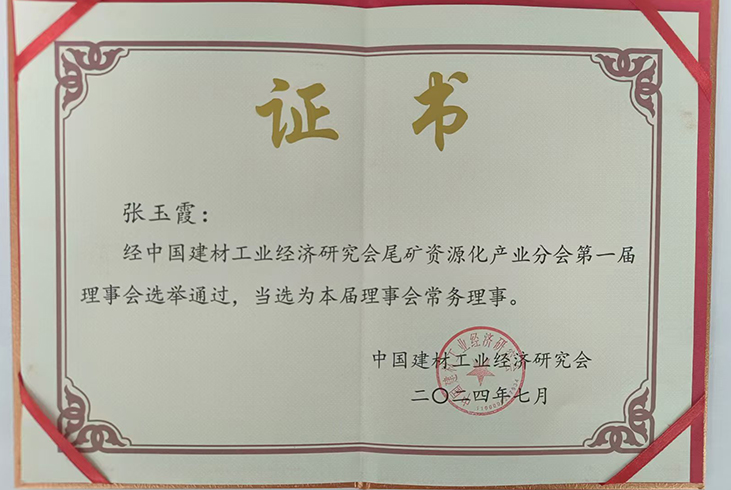 证书
张玉霞：
经中国建材工业经济研究会尾矿资源化产业分会第一届
理事会选举通过，当选为本届理事会常务理事。
中国建材工业经济研究会
二〇二四年七月
中国建材工业经济研究会